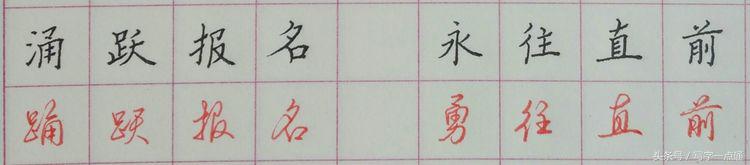 涌跃报名 永往直前
踊跃报名 勇往直前
头条号/写字一点通